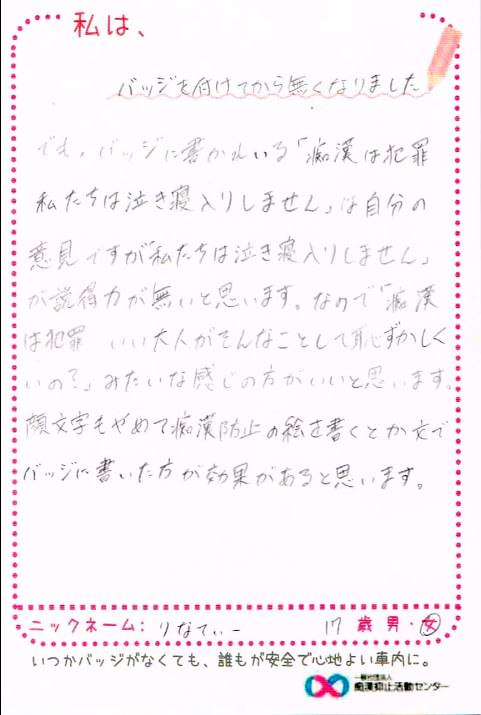 私は、
バッジを付けてから無くなりました
でも、バッジに書かれいる「痴漢は犯罪
私たちは泣き寝入りしません」は自分の
意見ですが「私たちは泣き寝入りしません」
が説得力が無いと思います。なので「痴漢
は犯罪 いい大人がそんなことして恥ずかしく
いの?」みたいな感じの方がいいと思います。
顔文字もやめて痴漢防止の絵を書くとか文で
バッジに書いた方が効果があると思います。
ニックネーム: りなてぃー 17 歳 男・女
いつかバッジがなくても、誰もが安全で心地よい車内に。
一般社団法人
痴漢抑止活動センター